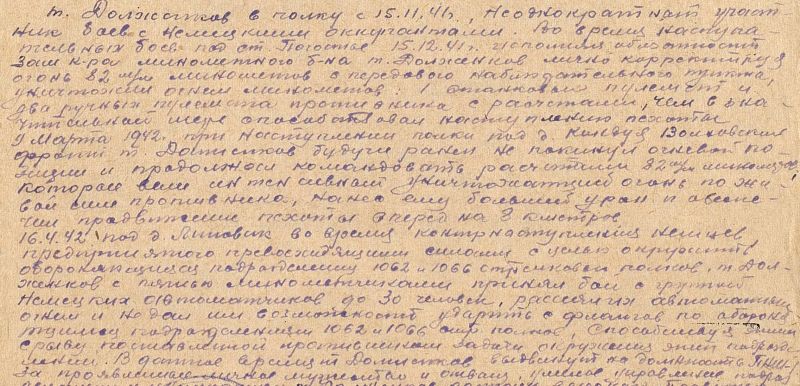 т. Долженков в полку с 15.11.41г., неоднократный участ-
ник боев с немецкими оккупантами. Во время наступа-
тельных боев под ст. Погостье 15.12.41г. исполняя обязанности
Зам к-ра минометного б-на т. Долженков лично корректируя
огонь 82 м/м минометов с передового наблюдательного пункта,
уничтожил огнем минометов: 1 станковый пулемет и
два ручных пулемета противника с расчетами, чем в зна-
чительной мере способствовал наступлению пехоты
9 марта 1942г. при наступлении полка под д. Волховский
фронт т. Долженков будучи ранен не покинул огневой по-
зиции и продолжал командовать расчетами 82 м/м минометов,
которые вели интенсивный уничтожающий огонь по жи-
вой силе противника, нанес ему большой урон и обеспе-
чил продвижение пехоты вперед на 8 кметров.
16.4.42 под д. Липовик во время контрнаступления немцев
предпринятого превосходящими силами с целью окружить
обороняющиеся подразделения 1062 и 1066 стрелковых полков, т. Дол-
женков с пятью минометчиками принял бой с группой
немецких автоматчиков до 30 человек, рассеял их автоматным
огнем и не дал им возможности ударить с флангов по обороня-
ющимся подразделениям 1062 и 1066 полков, способствуя этим
срыву поставленной противником задачи окружения этих подразде-
лений. В данное время т. Долженков выдвинут на должность ПНШ-1
За проявленное личное мужество и отвагу, умелое управление подраз-